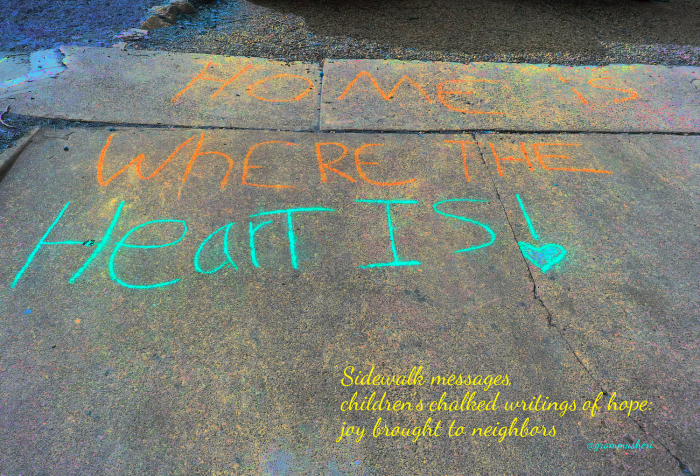 HOME IS
WhERE THE
HearT IS!
Sidewalk messages,
children's chalked writings of hope:
joy brought to neighbors
@grammasheri